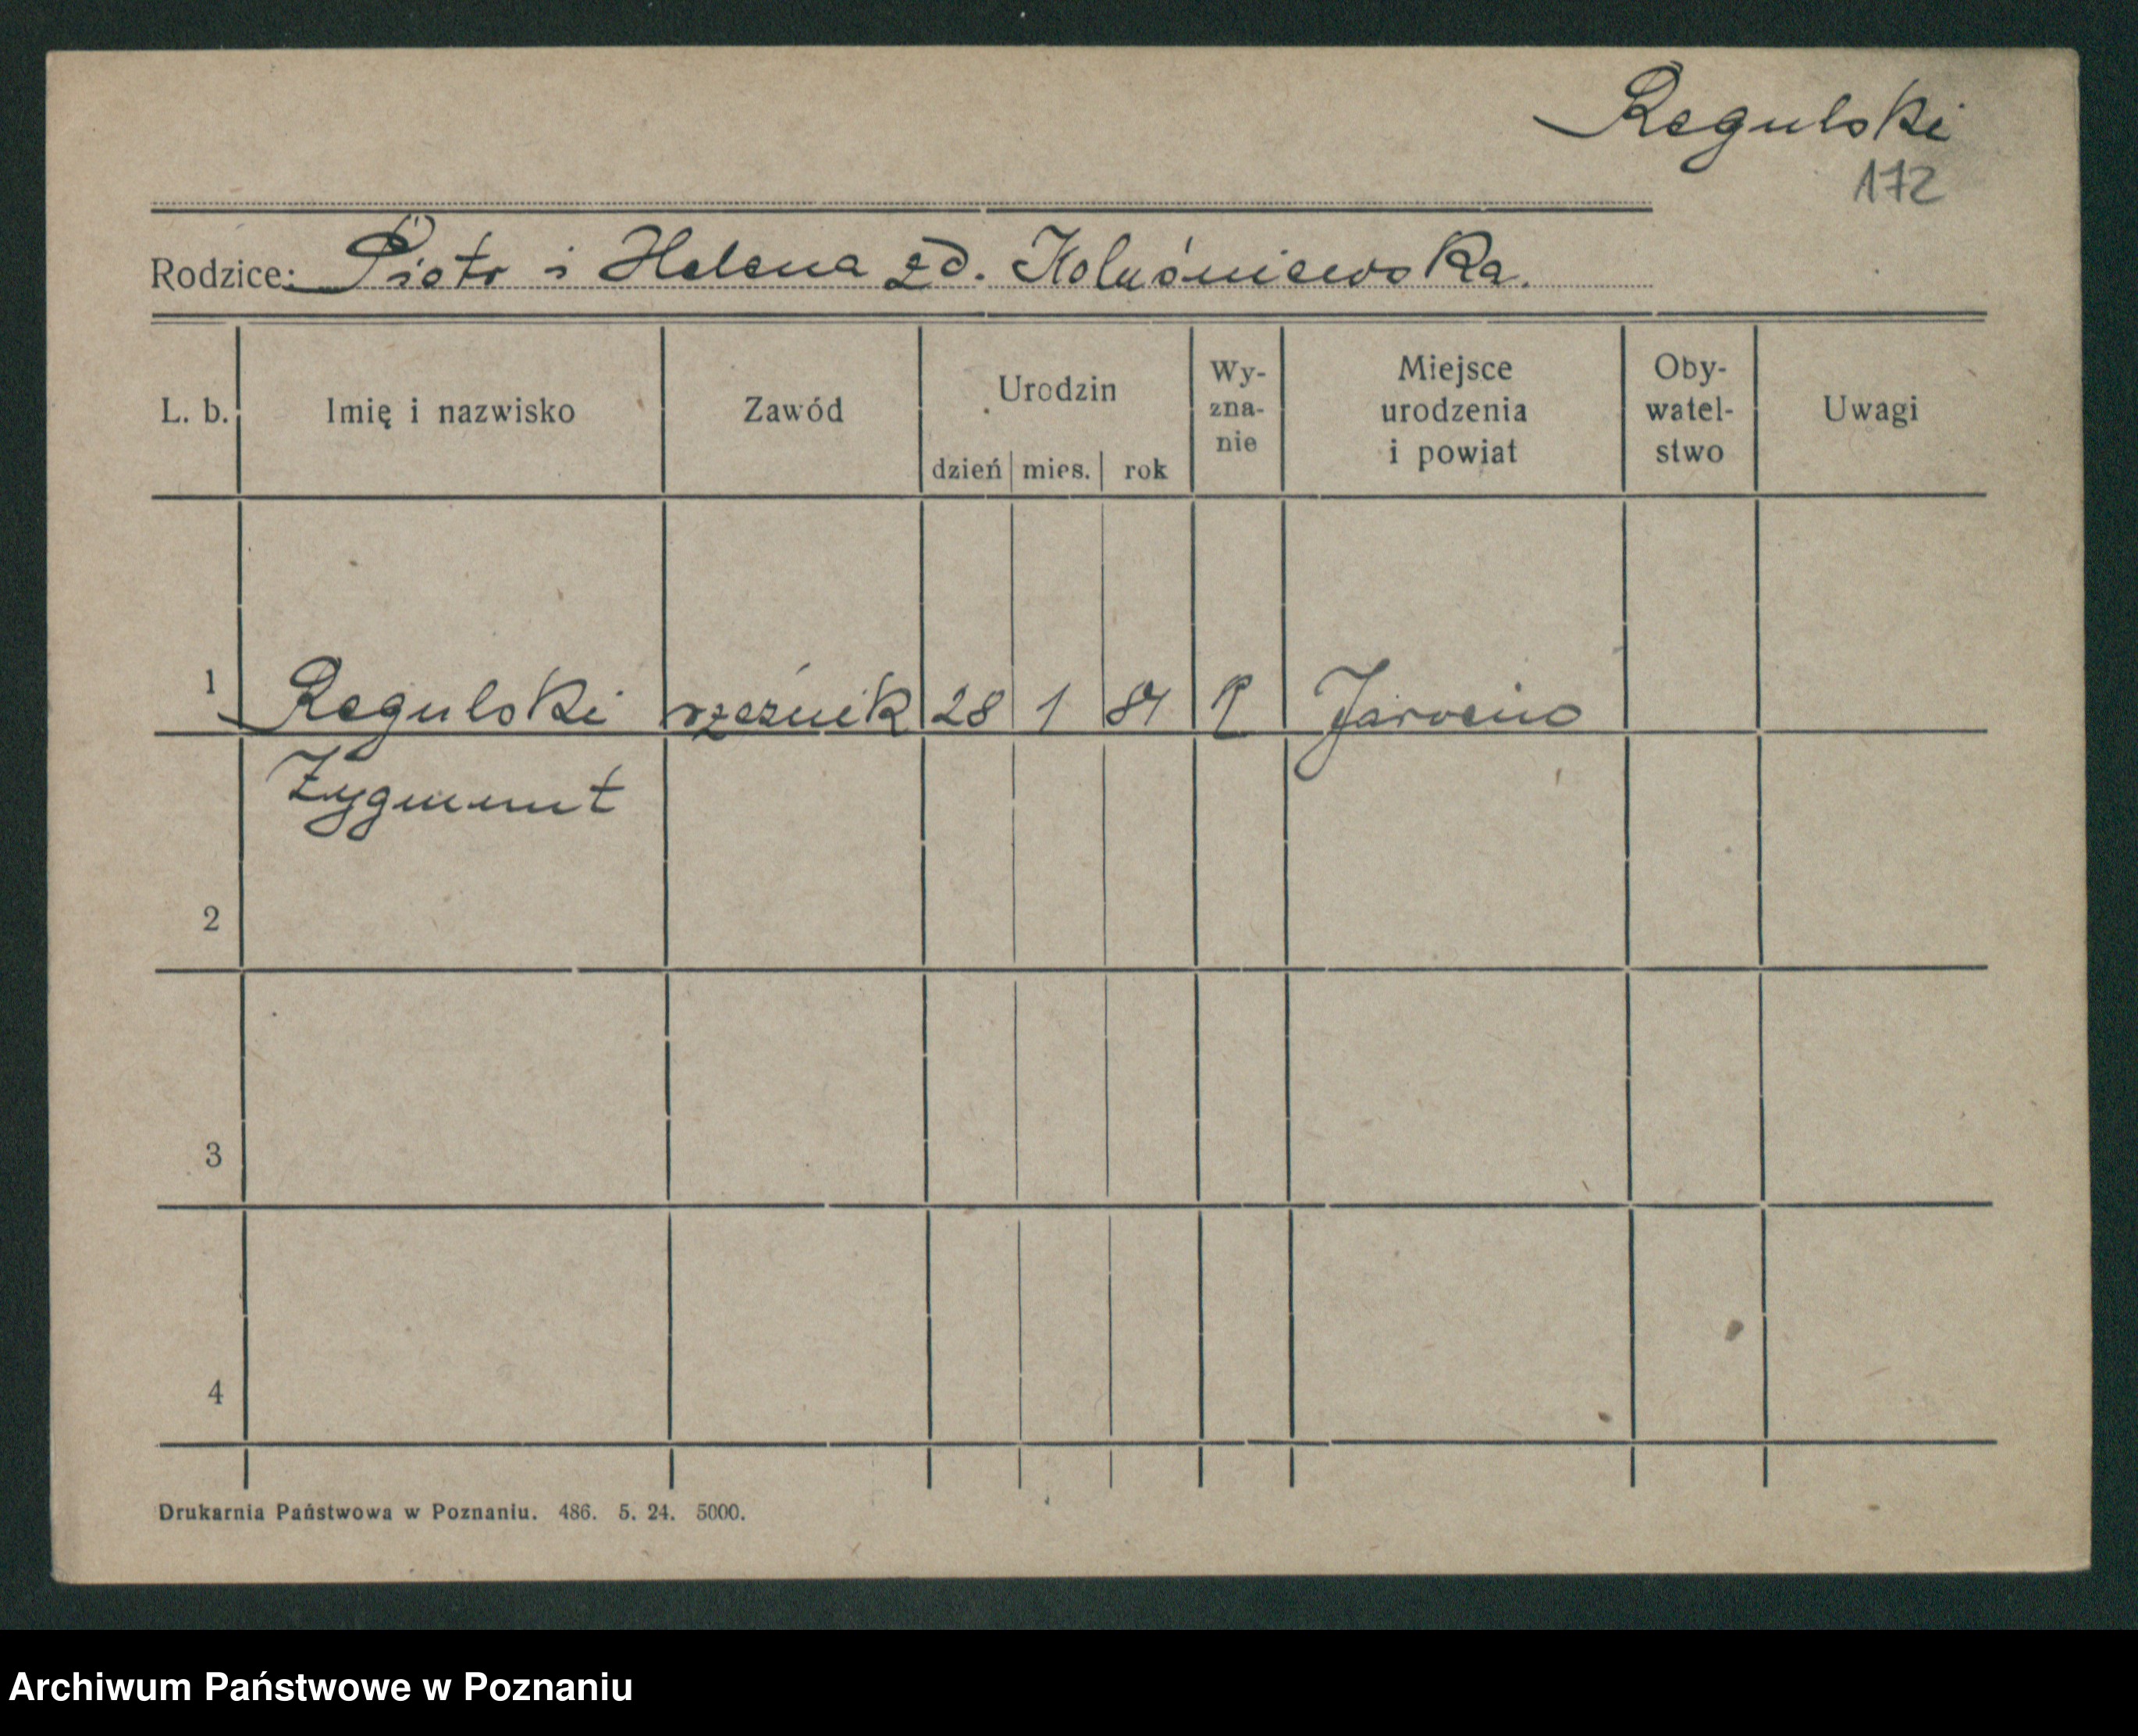 Regulski
172
Rodzice: Piotr i Helena zd. Koluśniewska.
L. b. Imię i nazwisko Zawód Urodzin dzień mies. rok Wy- zna- nie Miejsce urodzenia i powiat Oby- watel- stwo Uwagi
1 Regulski rzeźnik 28 1 84 R Jarocin
Zygmunt
2
3
4
Drukarnia Państwowa w Poznaniu. 486. 5. 24. 5000.
Archiwum Państwowe w Poznaniu